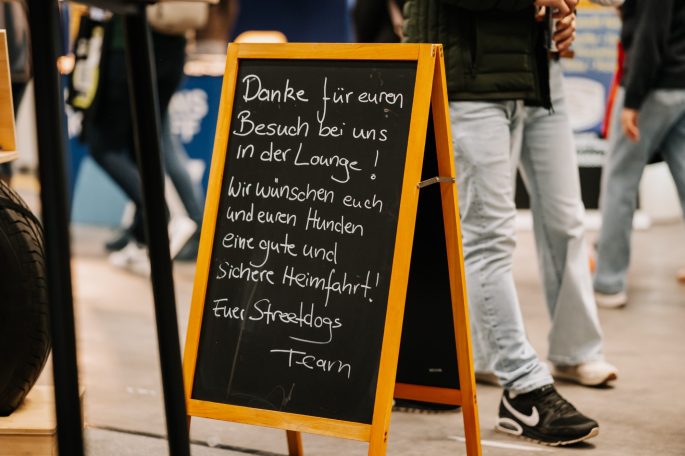 Danke für euren
Besuch bei uns
in der Lounge!
Wir wünschen euch
und euren Hunden
eine gute und
sichere Heimfahrt!
Euer Streetdogs
Team